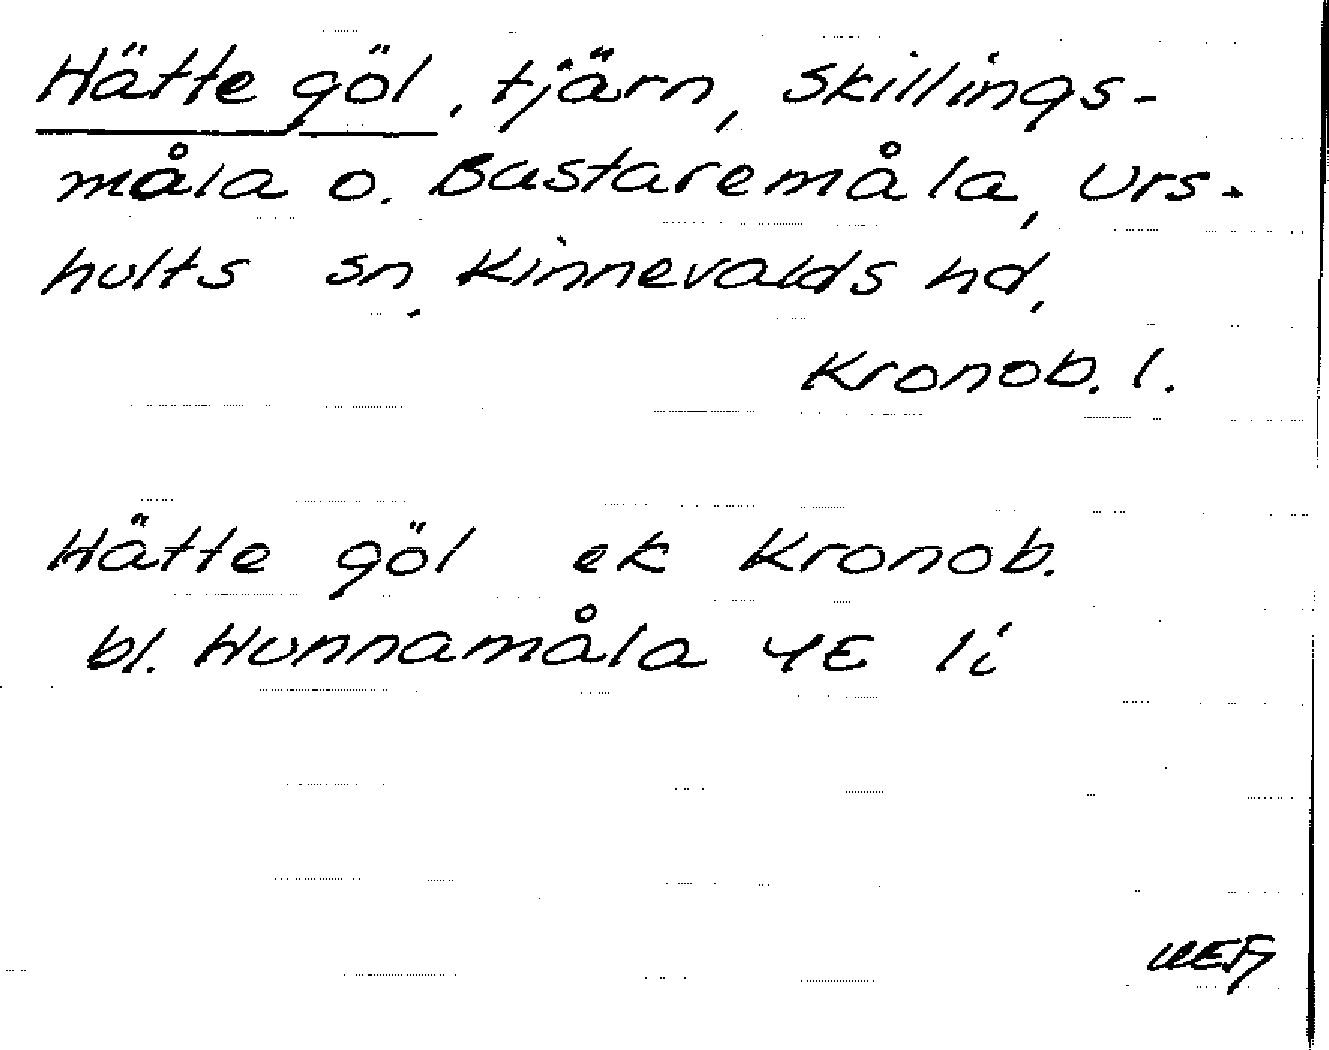 Hätte göl, tjärn, Skillings-
måla o. Bastaremåla, Urs-
hults sn, Kinnevalds hd,
Kronob. l.
Hätte göl ek Kronob.
bl. Hunnamåla 4E 1i